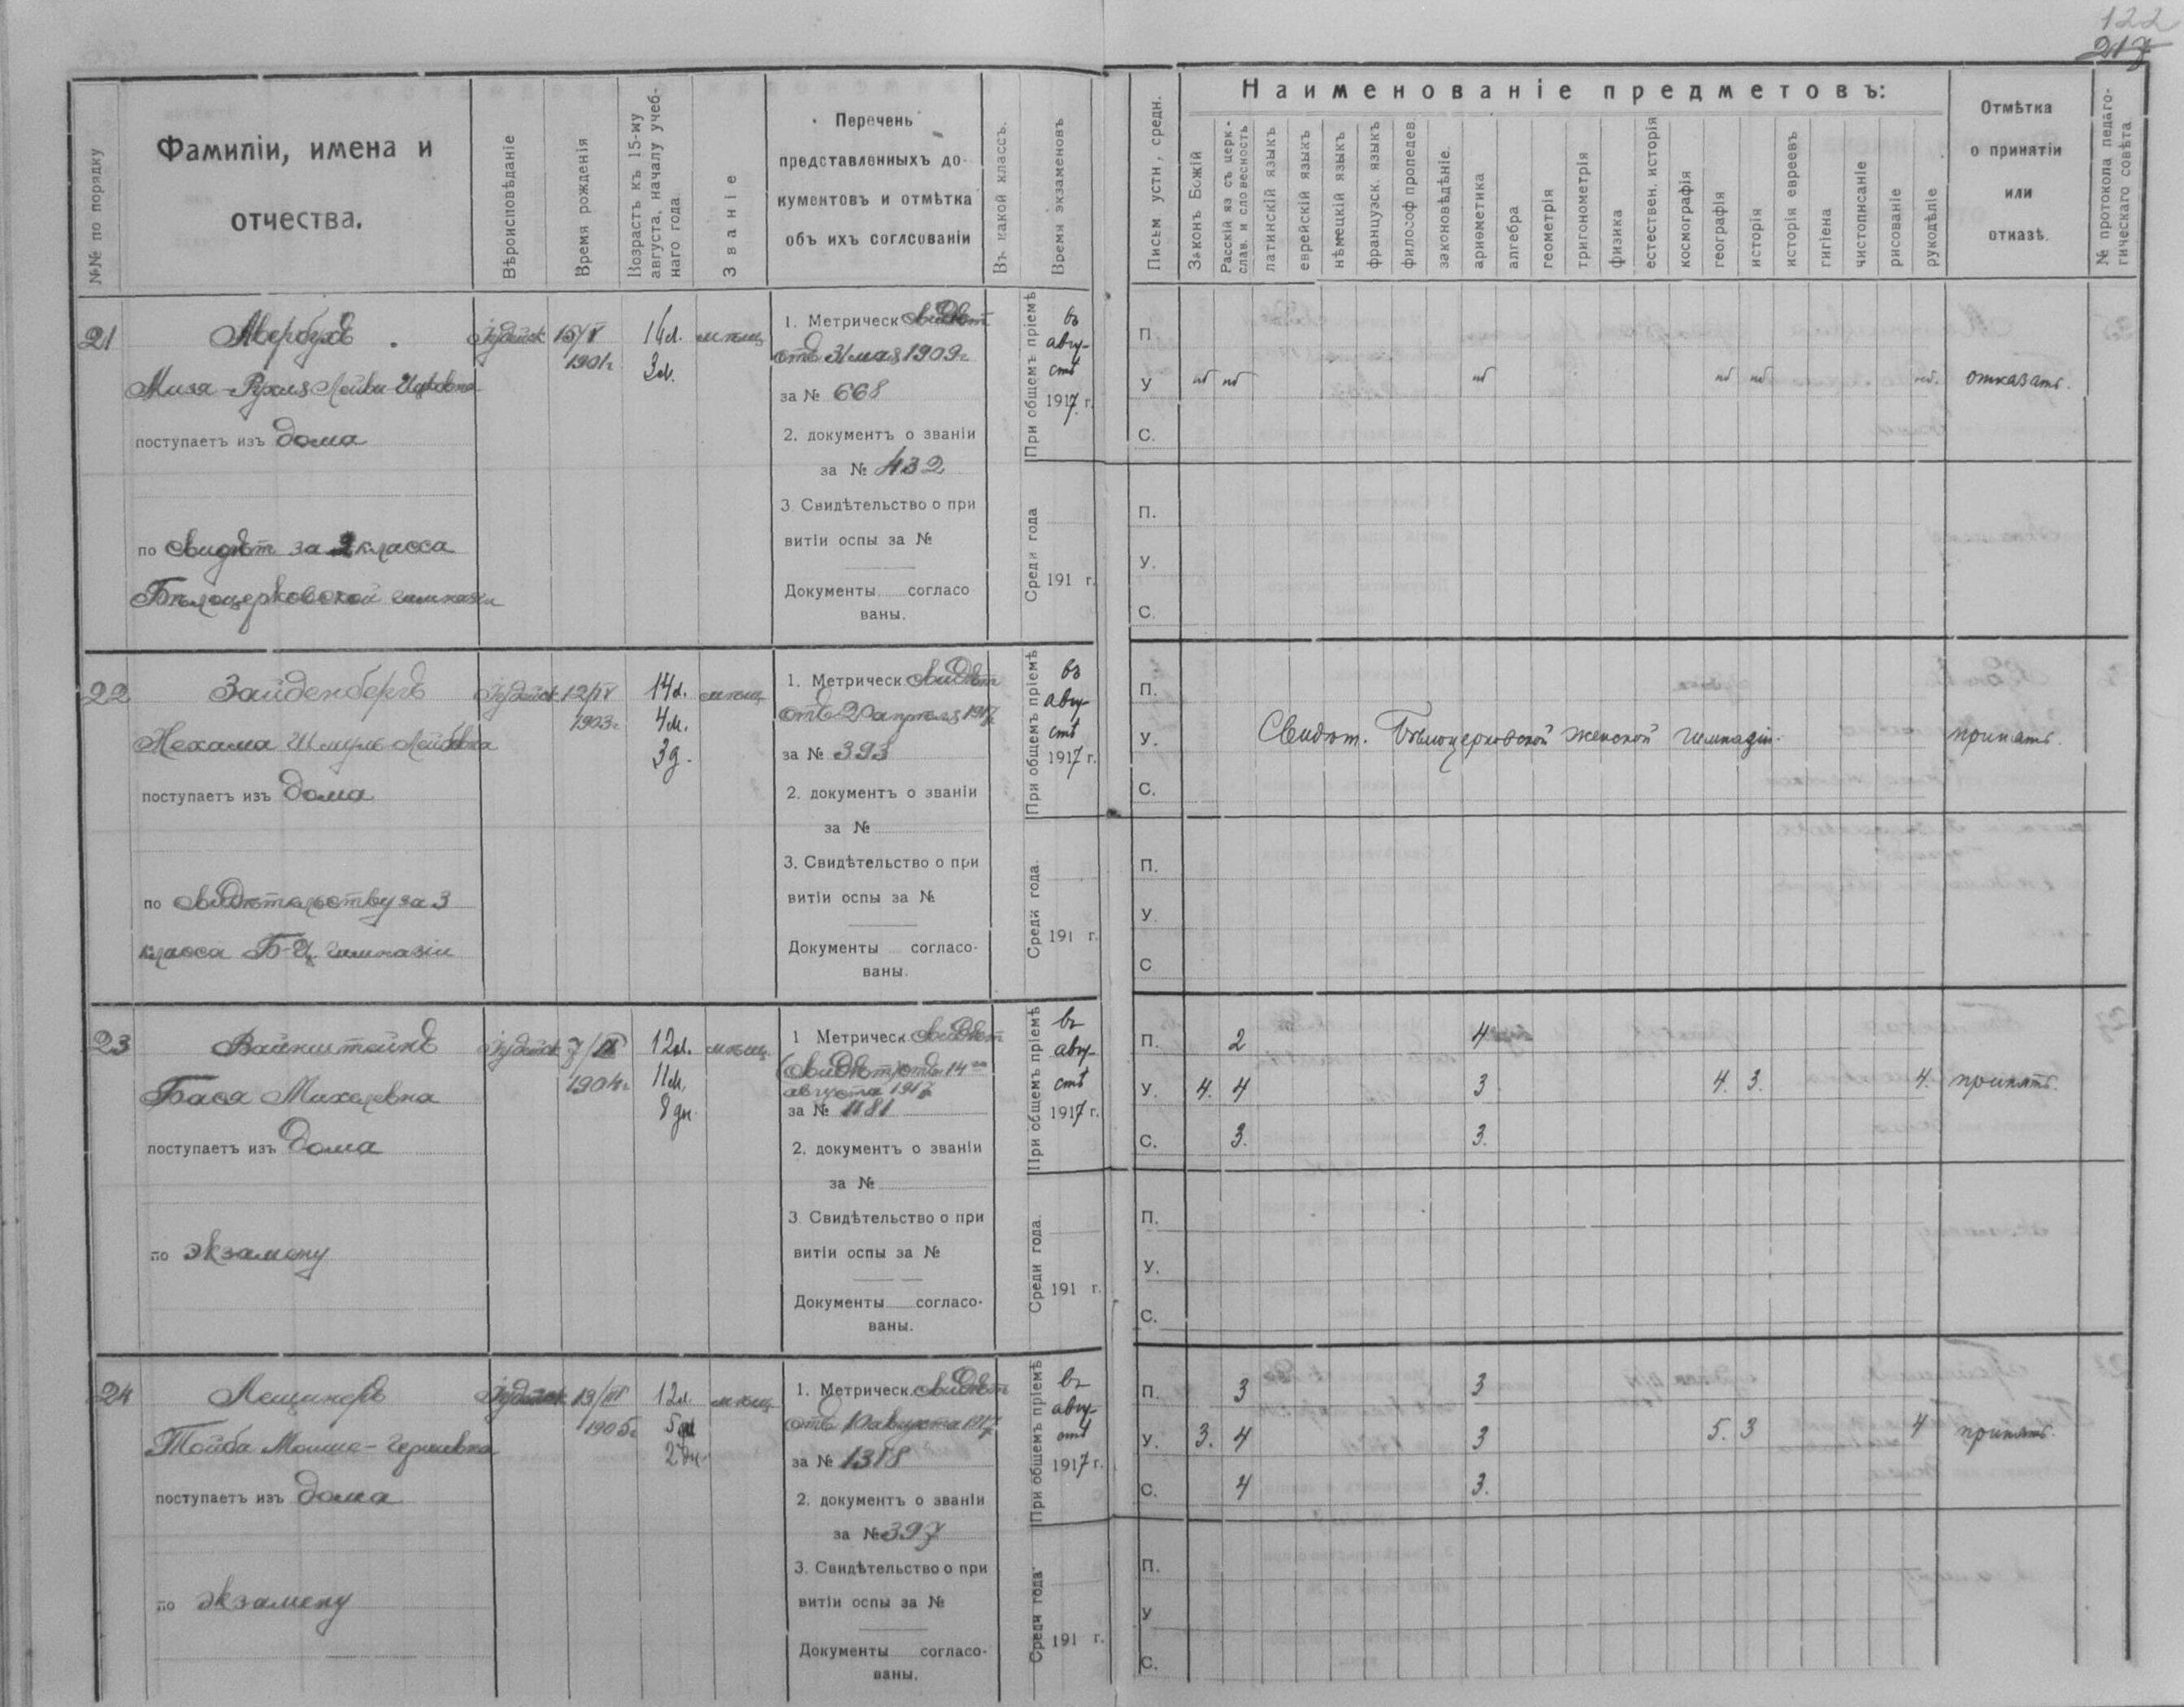 122
217
№№ по порядку
Фамиліи, имена и
отчества.
Вѣроисповѣданіе
Время рожденія
Возрастъ къ 15-му
августа, началу учеб-
наго года.
Званіе
Перечень
представленныхъ до-
кументовъ и отмѣтка
объ ихъ соглсованіи
Въ какой классъ.
Время экзаменовъ
Письм устн, средн.
Наименованіе предметовъ:
Законъ Божій
Расскій яз съ церк-
слав. и словесность
латинскій языкъ
еврейскій языкъ
нѣмецкій языкъ
французск. языкъ
философ пропедев.
законовѣдѣніе.
ариѳметика
алгебра
геометрія
тригонометрія
физика
естествен. исторія
космографія
географія
исторія
исторія евреевъ
гигіена
чистописаніе
рисованіе
рукодѣліе
Отмѣтка
о принятіи
или
отказѣ.
№ протокола педаго-
гическаго совѣта
21
Авербухъ
поступаетъ изъ дома
по свидѣт за 2 класса
Бѣлоцерковской гимназіи
Іудейск
15/V
1901г
16л.
3м.
мѣщ
1. Метрическ свидѣт
отъ 31 мая 1909г
за № 668
2. документъ о званіи
за № 432
3. Свидѣтельство о при
витіи оспы за №
Документы согласо
ваны.
При общемъ пріемѣ
въ
авгу-
стѣ
1917 г.
Среди года
191 г.
П.
У нб нб нб нб нб нб. отказать.
С.
П.
У.
С.
22
Зайденбергъ
Нехама Шмуль-Лейбовна
поступаетъ изъ дома
по свидѣтельству за 3
класса Б-Ц. гимназіи
Іудейск
12/IV
1903г
14л.
4м.
3д.
мѣщ
1. Метрическ. свидѣт
отъ 2 апреля 1917
за № 393
2. документъ о званіи
за №
3. Свидѣтельство о при
витіи оспы за №
Документы согласо-
ваны.
При общемъ пріемѣ
въ
авгу-
стѣ
1917 г.
Среди года.
191 г.
П.
У. Свидѣт. Бѣлоцерковской женской гимназіи. принять.
С.
П.
У.
С
23
Вайнштейнъ
Бася Михелевна
поступаетъ изъ дома
по экзамену
Іудейск
1904г
12л.
11м.
8 дн.
мѣщ.
1 Метрическ. свидѣт
августа 1917
за № 1181
2. документъ о званіи
за №
3. Свидѣтельство о при
витіи оспы за №
Документы согласо-
ваны.
При общемъ пріемѣ
въ
авгу-
стѣ
1917 г.
Среди года.
191 г.
П. 2 4
У. 4. 4 3 4. 3. 4. принять.
С. 3. 3.
П.
У.
С.
24
Лещинеръ
Тойба Мошко-Гершевна
поступаетъ изъ дома
по экзамену
Іудейск
1905г
12л.
5м
2дн.
мѣщ
1. Метрическ. свидѣт
отъ 10 августа 1917
за № 1318
2. документъ о званіи
за № 397
3. Свидѣтельство о при
витіи оспы за №
Документы согласо-
ваны.
При общемъ пріемѣ
въ
авгу-
стѣ
1917 г.
Среди года
191 г.
П. 3 3
У. 3. 4 3 5. 3 4 принять.
С. 4 3.
П.
У
С.